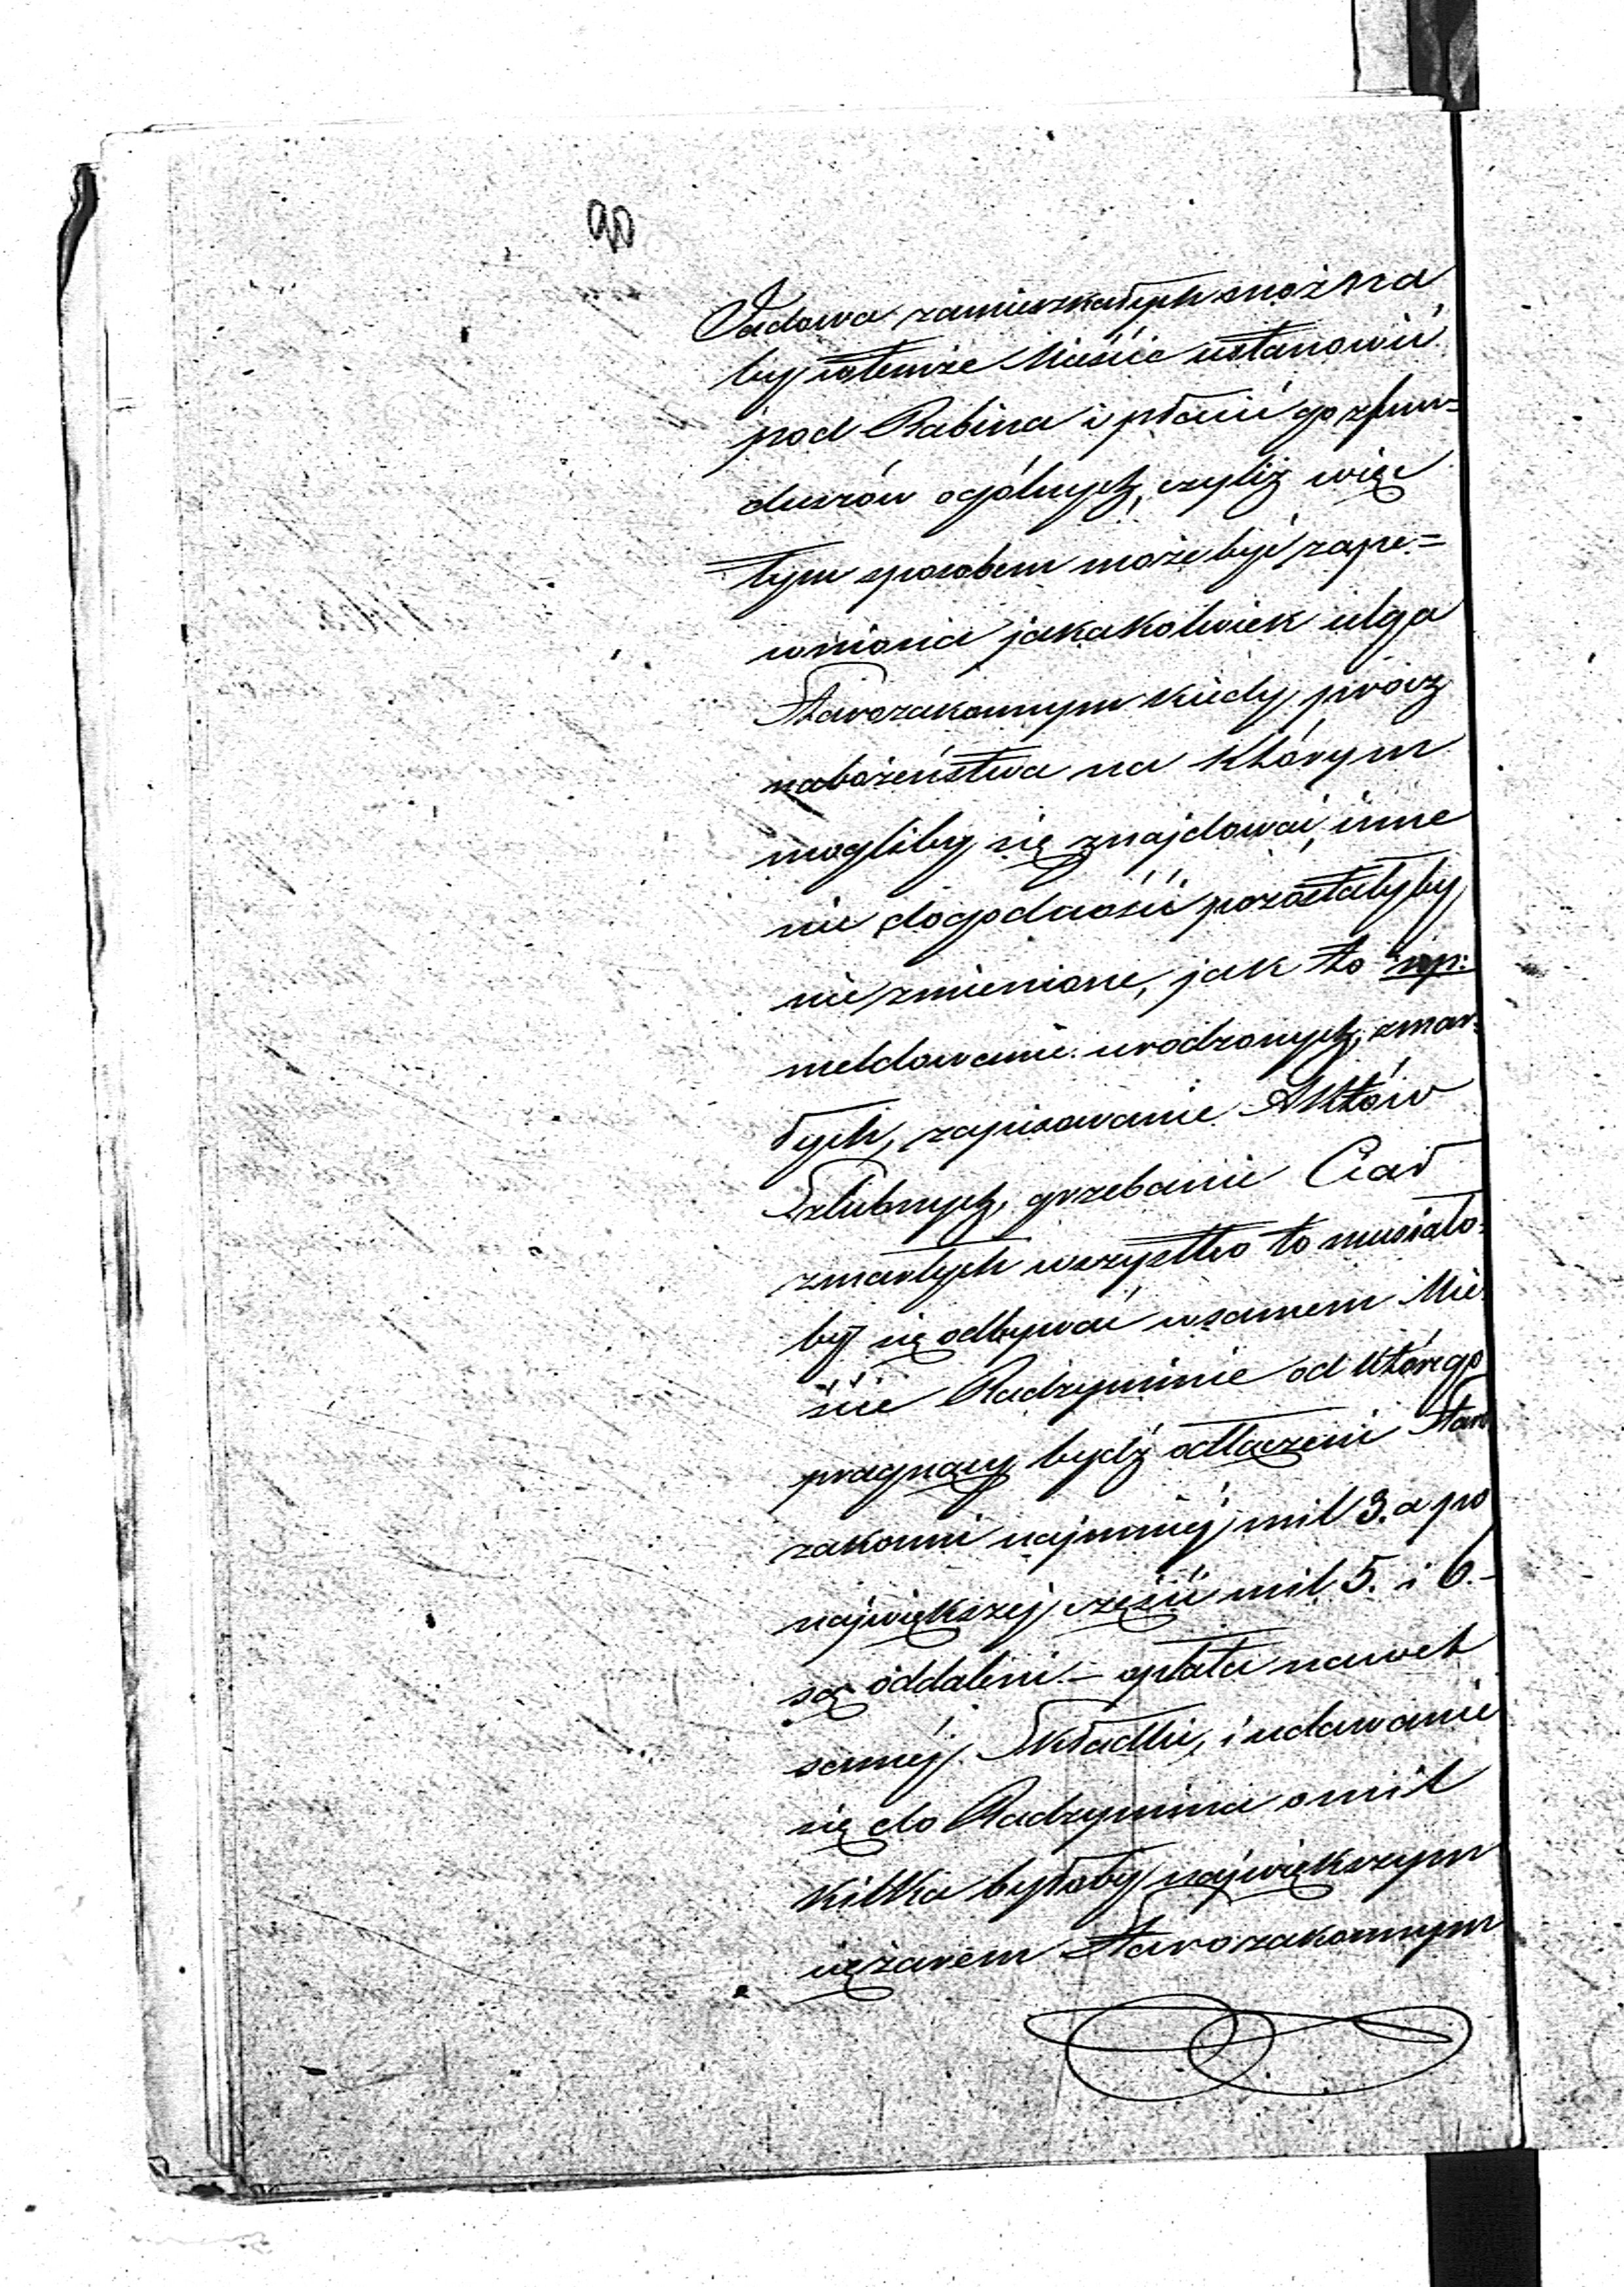 90
Jadowa zamieszkałych można
by w temże Mieście ustanowić
pod Rabina i płacić go z fun=
duszów ogólnych, czyliż więc
tym sposobem może być zape=
wniona jakakolwiek ulga
Starozakonnym kiedy prócz
nabożeństwa na którym
mogliby się znajdować, inne
nie dogodności pozostałyby
nie zmienione, jak to np:
meldowanie urodzonych, zmar=
łych, zapisowanie Aktów
Szlubnych, grzebanie Ciał
zmarłych wszystko to musiało=
by się odbywać w samem Mie=
ście Radzyminie od którego
pragnący bydź odłączeni Staro
zakonni najmniéj mil 3. a po
największéj części mil 5. i 6.-
są oddaleni.- opłata nawet
saméj Składki, i udawanie
się do Radzymina o mil
kilka byłoby największym
ciężarem Starozakonnym